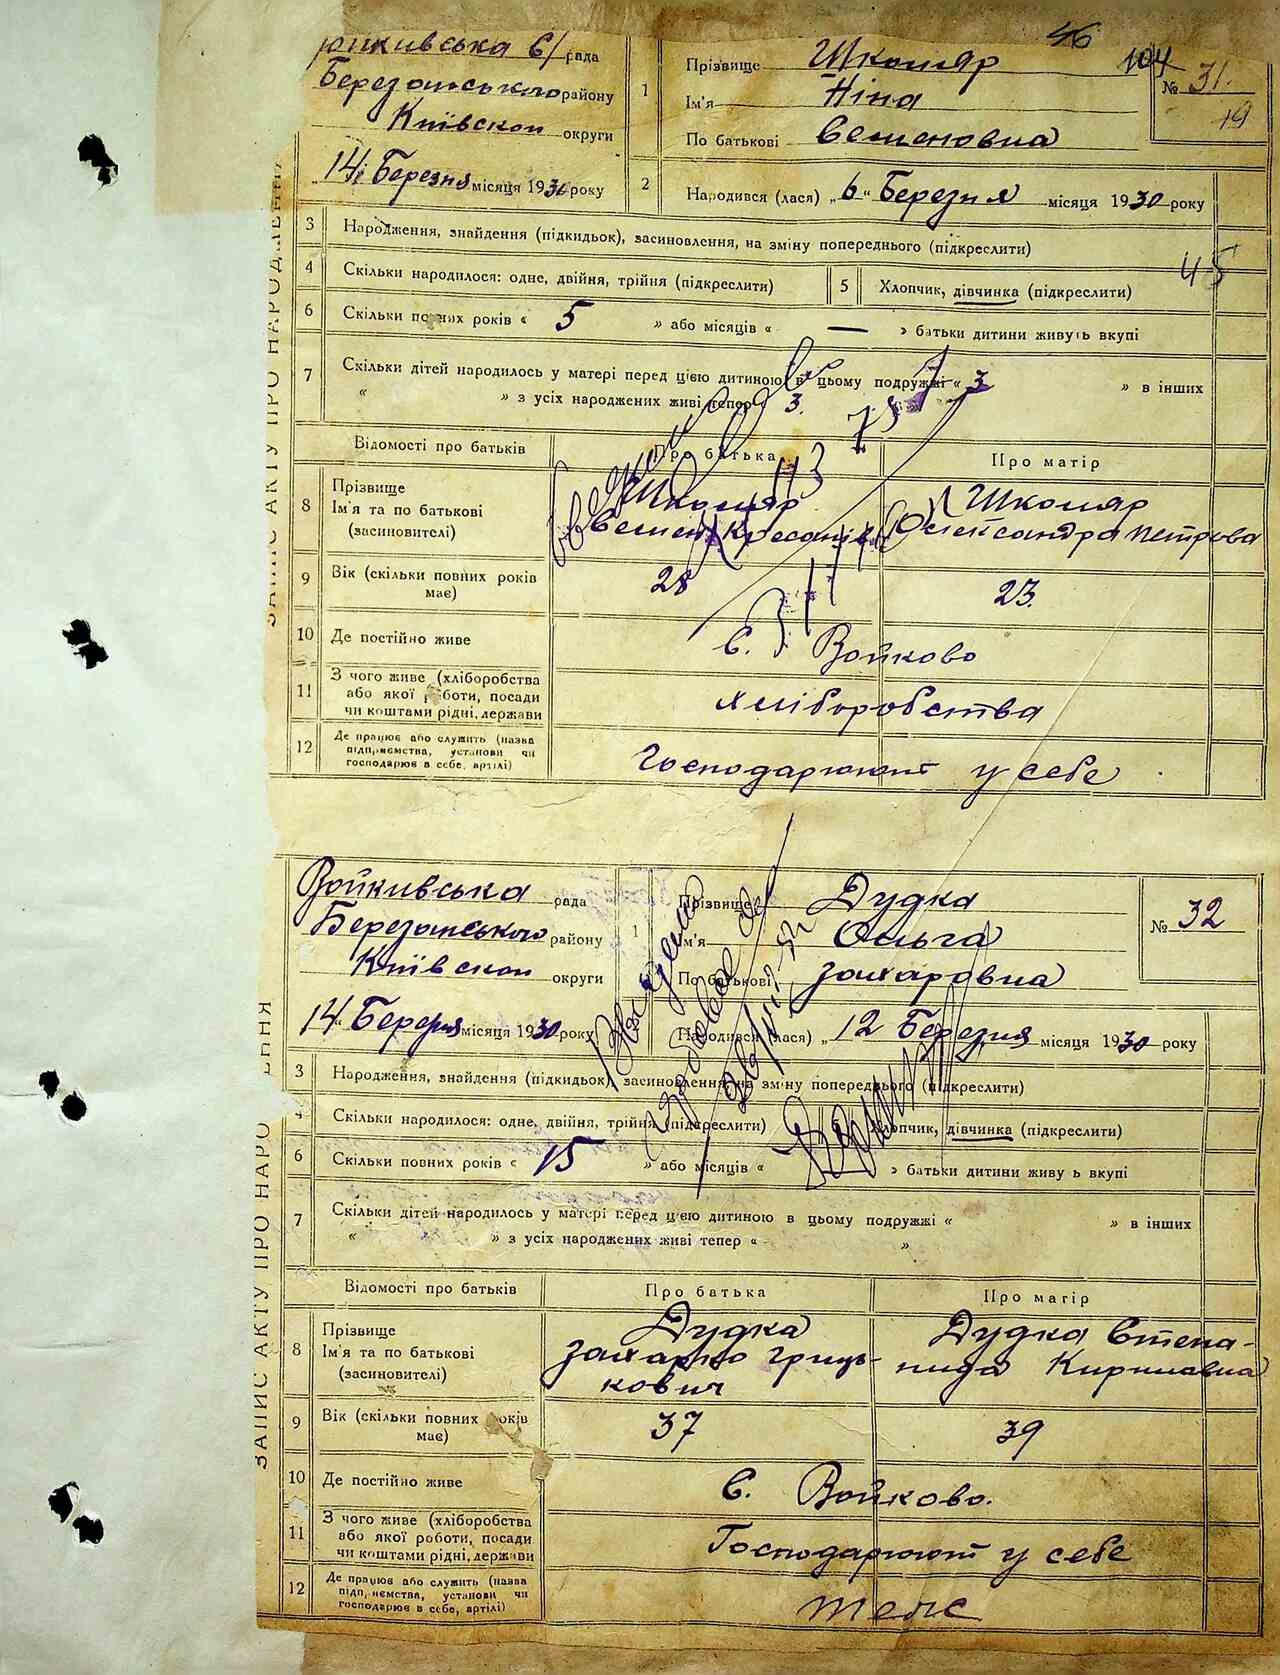 46
104
рада
Березанського району
Київскои округи
14 Березня місяця 1930 року
1
Прізвище Школяр
Ім'я Ніна
По батькові Семеновна
№ 31.
19
2
Народився (лася) „6“ Березня місяця 1930 року
ЗАПИС АКТУ ПРО НАРОДЖЕННЯ
3 Народження, знайдення (підкидьок), засиновлення, на зміну попереднього (підкреслити)
45
4 Скільки народилося: одне, двійня, трійня (підкреслити)
5 Хлопчик, дівчинка (підкреслити)
6 Скільки повних років « 5 » або місяців « — » батьки дитини живуть вкупі
7 Скільки дітей народилось у матері перед цією дитиною в цьому подружжі « 3 » в інших
« » з усіх народжених живі тепер 3.
Відомості про батьків Про батька Про матір
8 Прізвище
Ім'я та по батькові
(засиновителі)
Школяр
Семен
Школяр
Олександра Петрова
9 Вік (скільки повних років має) 28 23.
10 Де постійно живе с. Войково
11 З чого живе (хліборобства
або якої роботи, посади
чи коштами рідні, держави
хліборобства
12 Де працює або служить (назва
підприємства, установи чи
господарює в себе, артілі)
Господарюют у себе
Войкивська рада
Березанського району
Київскои округи
14 Березня місяця 1930 року
1
Прізвище Дудка
Ім'я Ольга
По батькові Захаровна
№ 32
Народився (лася) „12 Березня місяця 1930 року
3 Народження, знайдення (підкидьок), засиновлення, на зміну попереднього (підкреслити)
4 Скільки народилося: одне, двійня, трійня (підкреслити)
Хлопчик, дівчинка (підкреслити)
6 Скільки повних років « 15 » або місяців « » батьки дитини живуть вкупі
7 Скільки дітей народилось у матері перед цією дитиною в цьому подружжі « » в інших
« » з усіх народжених живі тепер « »
Відомості про батьків Про батька Про матір
8 Прізвище
Ім'я та по батькові
(засиновителі)
Дудка
Захарко Грицькович
Дудка Степанида Кирилавна
9 Вік (скільки повних років має) 37 39
10 Де постійно живе с. Войково.
11 З чого живе (хліборобства
або якої роботи, посади
чи коштами рідні, держави
Господарюют у себе
12 Де працює або служить (назва
підприємства, установи чи
господарює в себе, артілі)
теж